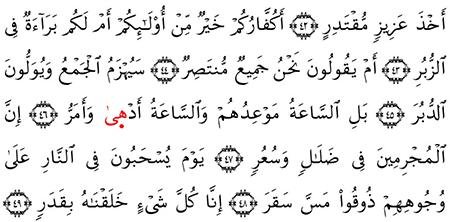 أَخْذَ عَزِيزٍ مُّقْتَدِرٍ ﴿٤٢﴾ أَكُفَّارُكُمْ خَيْرٌ مِّنْ أُوْلَـٰٓئِكُمْ أَمْ لَكُم بَرَآءَةٌ فِى
ٱلزُّبُرِ ﴿٤٣﴾ أَمْ يَقُولُونَ نَحْنُ جَمِيعٌ مُّنتَصِرٌ ﴿٤٤﴾ سَيُهْزَمُ ٱلْجَمْعُ وَيُوَلُّونَ
ٱلدُّبُرَ ﴿٤٥﴾ بَلِ ٱلسَّاعَةُ مَوْعِدُهُمْ وَٱلسَّاعَةُ أَدْهَىٰ وَأَمَرُّ ﴿٤٦﴾ إِنَّ
ٱلْمُجْرِمِينَ فِى ضَلَـٰلٍ وَسُعُرٍ ﴿٤٧﴾ يَوْمَ يُسْحَبُونَ فِى ٱلنَّارِ عَلَىٰ
وُجُوهِهِمْ ذُوقُوا۟ مَسَّ سَقَرَ ﴿٤٨﴾ إِنَّا كُلَّ شَىْءٍ خَلَقْنَـٰهُ بِقَدَرٍ ﴿٤٩﴾